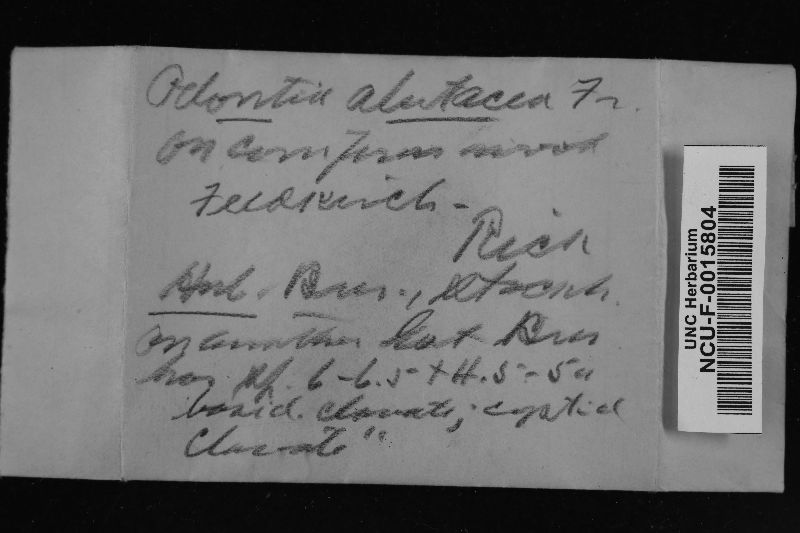 Odontia alutacea Fr.
on coniferous wood
Feldkirch -
Rich
Herb. Bres., Stockh.
on another lot Bres
has sp. 6-6.5 x 4.5-5u
basid. clavate; cystid
clavate"
UNC Herbarium
NCU-F-0015804